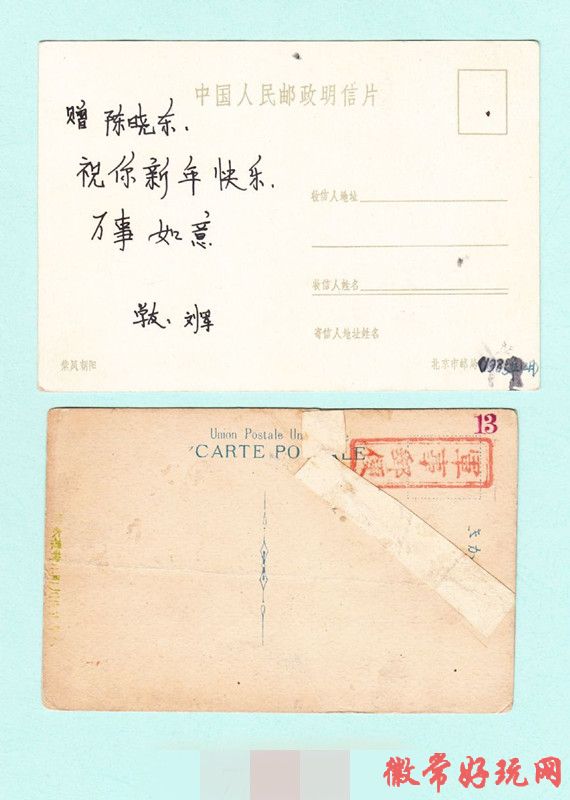 中国人民邮政明信片
赠 陈晓东.
祝你新年快乐.
万事如意
学友. 刘军
收信人地址
收信人姓名
寄信人地址姓名
北京市邮
13
Union Postale Un
CARTE PO ALE
徽常好玩网